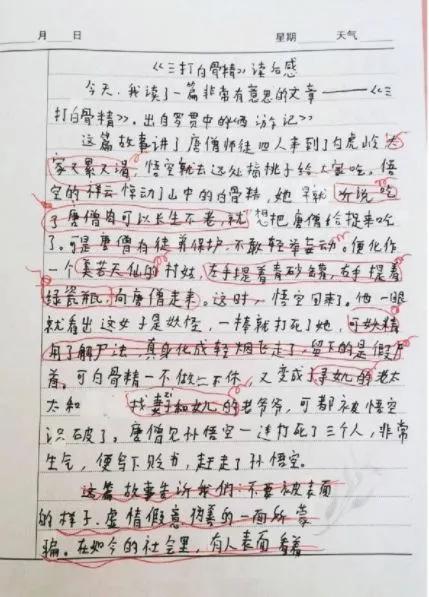 月 日 星期 天气
《三打白骨精》读后感
今天,我读了一篇非常有意思的文章——《三
打白骨精》。出自罗贯中的《西游记》
这篇故事讲了唐僧师徒四人来到了白虎岭大
家又累又渴,悟空就去远处摘桃子给大家吃。悟
空的祥云惊动了山中的白骨精,她早就听说吃
了唐僧肉可以长生不老,就想把唐僧给捉来吃
了。可是唐僧有徒弟保护,不敢轻举妄动。便化作
一个美若天仙的村姑,左手提着青砂罐,右手提着
绿瓷瓶,向唐僧走来。这时,悟空回来了。他一眼
就看出这女子是妖怪,一棒就打死了她,可妖精
用了解尸法,真身化成轻烟飞走了,留下的是假尸
首。可白骨精一不做二不休,又变成了寻女儿的老太
太和 找妻子和女儿的老爷爷,可都被悟空
识破了。唐僧见孙悟空一连打死了三个人,非常
生气,便写下贬书,赶走了孙悟空。
这篇故事告诉我们:不要被表面
的样子、虚情假意伪善的一面所蒙
骗。在如今的社会里,有人表面看着